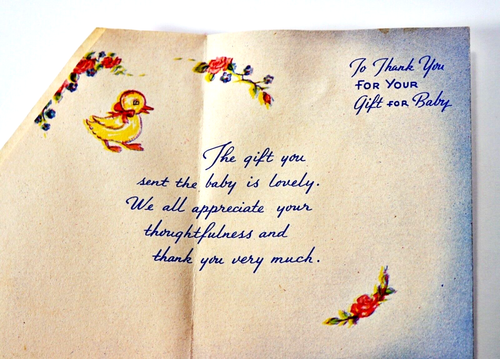 To Thank You
FOR YOUR
Gift FOR Baby
The gift you
sent the baby is lovely.
We all appreciate your
thoughtfulness and
thank you very much.